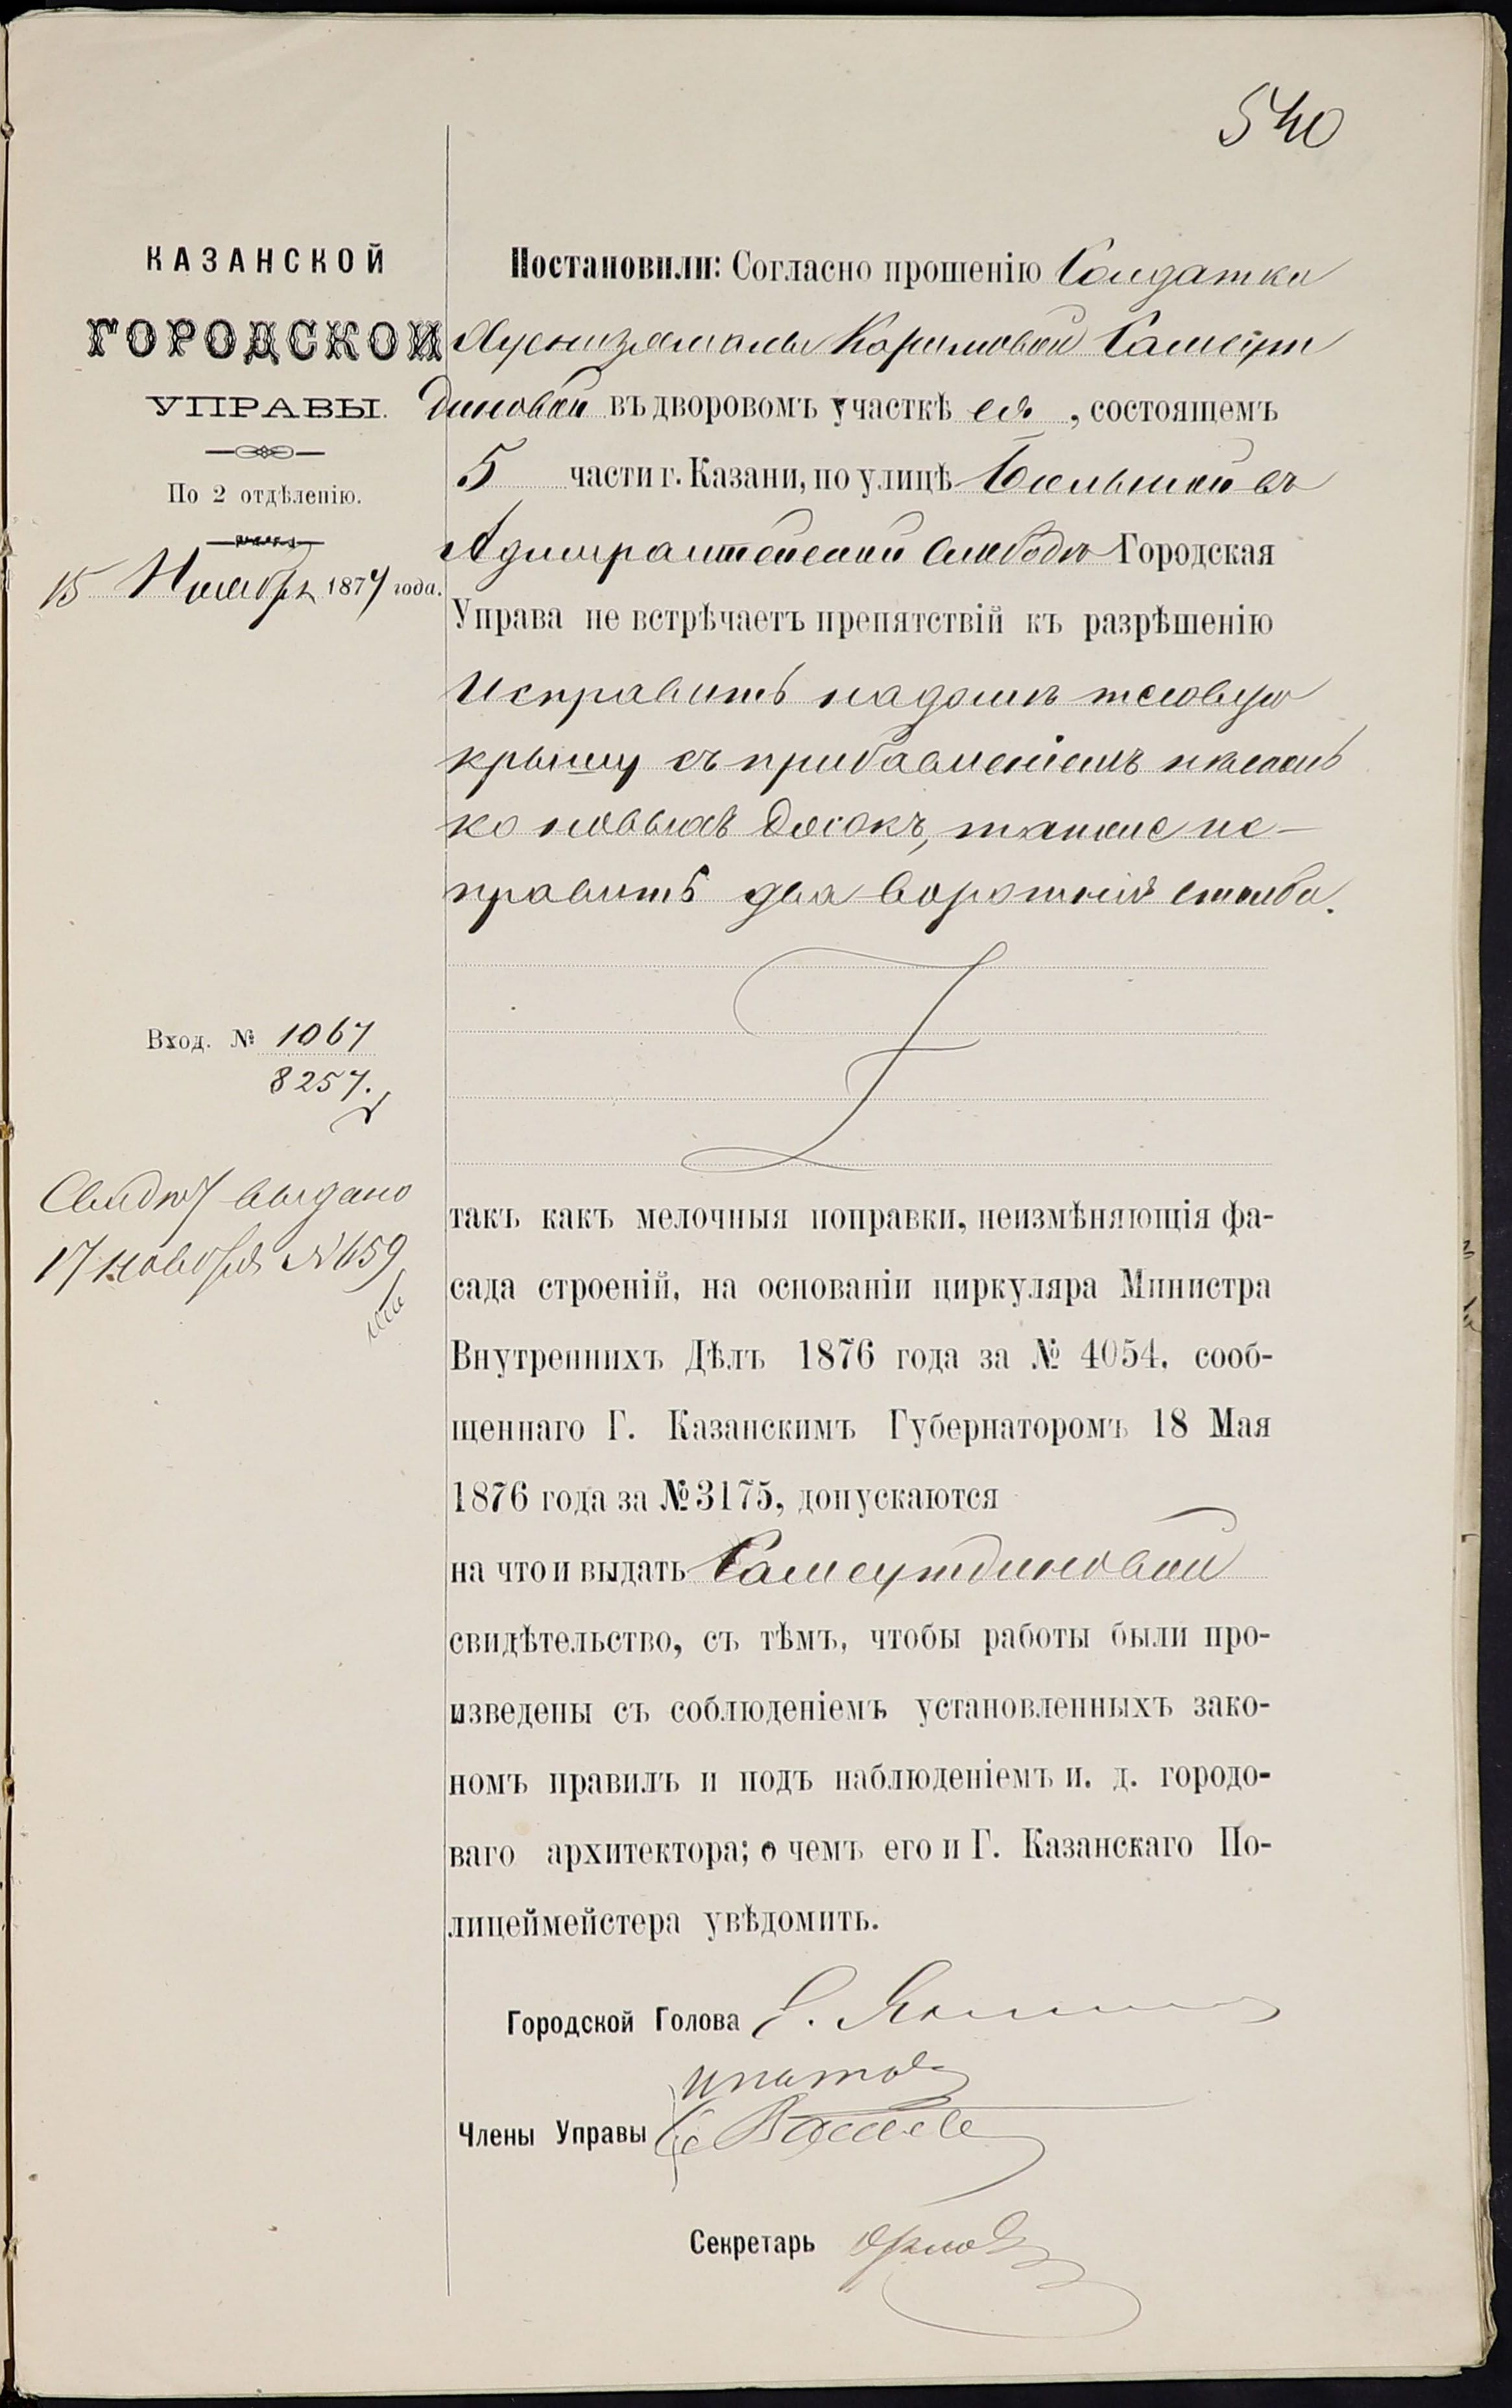 540
КАЗАНСКОЙ
ГОРОДСКОЙ
УПРАВЫ.
По 2 отдѣленію.
15 Ноября 1877 года.
Вход. № 1067
8257.
Свидѣт выдано
17 ноября №659
Постановили: Согласно прошенію Солдатки
Хуснизямалы Каримовой Самсут
диновой въ дворовомъ участкѣ ея, состоящемъ
5 части г. Казани, по улицѣ Большой въ
Адмиралтейской слободѣ Городская
Управа не встрѣчаетъ препятствій къ разрѣшенію
исправить на домѣ тесовую
крышу съ прибавленіемъ нѣсколь
ко новыхъ досокъ, также ис-
править два воротнія столба.
такъ какъ мелочныя поправки, неизмѣняющія фа-
сада строеній, на основаніи циркуляра Министра
Внутреннихъ Дѣлъ 1876 года за № 4054, сооб-
щеннаго Г. Казанскимъ Губернаторомъ 18 Мая
1876 года за № 3175, допускаются
на что и выдать Самсутдиновой
свидѣтельство, съ тѣмъ, чтобы работы были про-
изведены съ соблюденіемъ установленныхъ зако-
номъ правилъ и подъ наблюденіемъ и. д. городо-
ваго архитектора; о чемъ его и Г. Казанскаго По-
лицеймейстера увѣдомить.
Городской Голова
Члены Управы Ипатовъ
Секретарь Орловъ